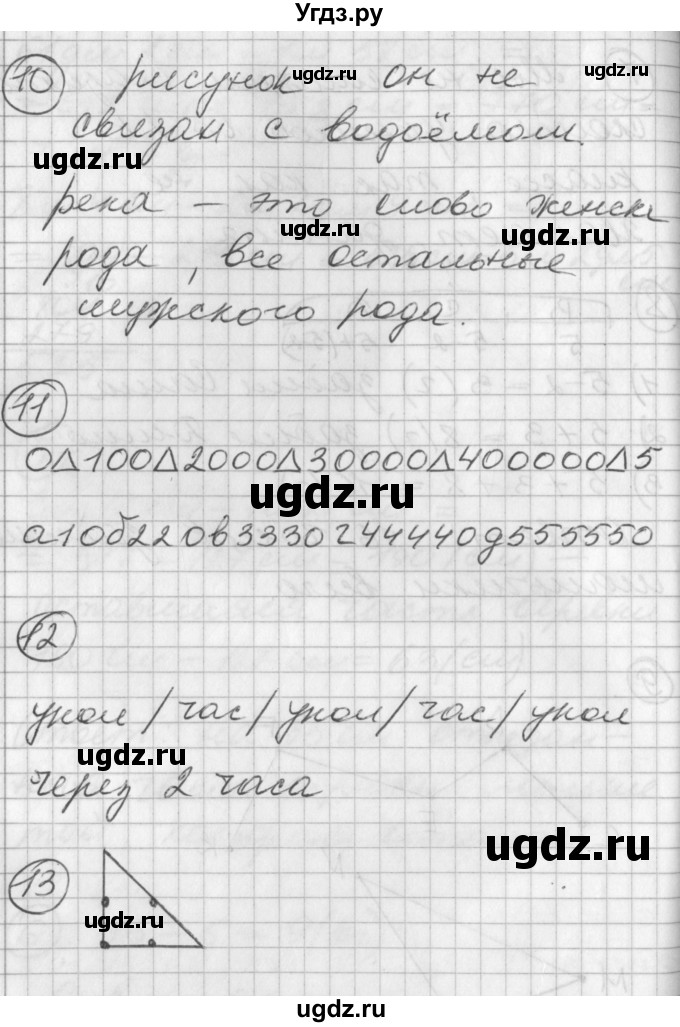 Угдз.ру
10 рисунок он не
связан с водоёмом.
река – это слово женск
рода, все остальные
мужского рода.
11
0Δ100Δ2000Δ30000Δ400000Δ5
а10б220в3330г44440д555550
12
укол / час / укол / час / укол
через 2 часа
13
ugdz.ru
ugdz.ru
ugdz.ru
ugdz.ru
ugdz.ru
ugdz.ru
ugdz.ru
ugdz.ru
ugdz.ru
ugdz.ru